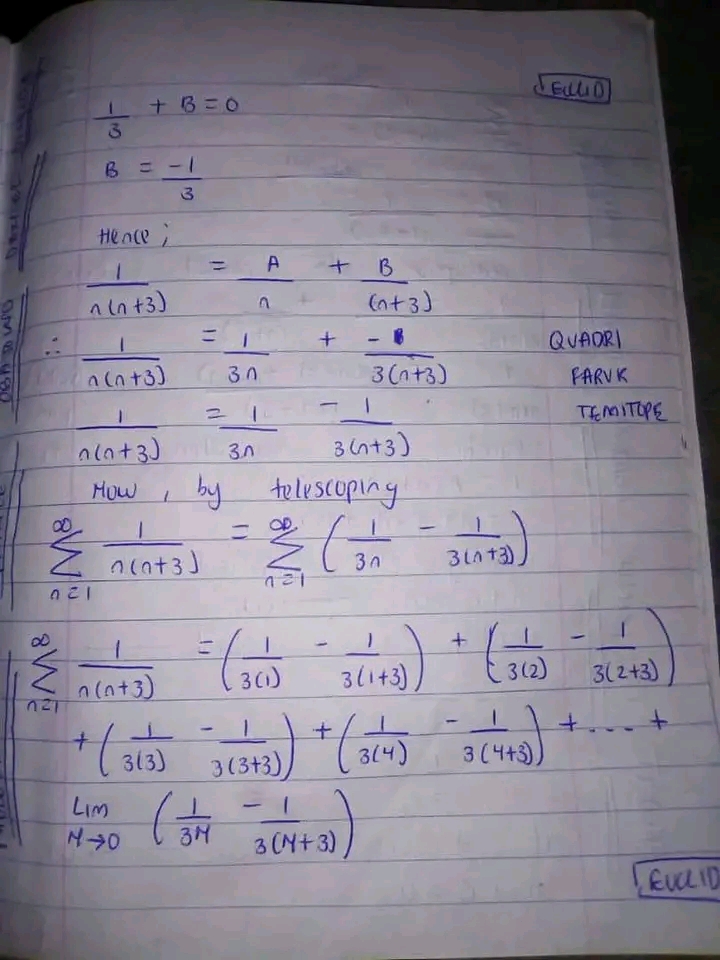 EUCLID
1/3 + B = 0
B = -1/3
Hence;
1/(n(n+3)) = A/n + B/(n+3)
∴ 1/(n(n+3)) = 1/(3n) + -1/(3(n+3)) QUADRI
FARUK
1/(n(n+3)) = 1/(3n) - 1/(3(n+3)) TEMITOPE
Now, by telescoping
∞∑n=1 1/(n(n+3)) = ∞∑n=1 (1/(3n) - 1/(3(n+3)))
∞∑n=1 1/(n(n+3)) = (1/(3(1)) - 1/(3(1+3))) + (1/(3(2)) - 1/(3(2+3)))
+ (1/(3(3)) - 1/(3(3+3))) + (1/(3(4)) - 1/(3(4+3))) + .... +
Lim N→0 (1/(3N) - 1/(3(N+3)))
EUCLID